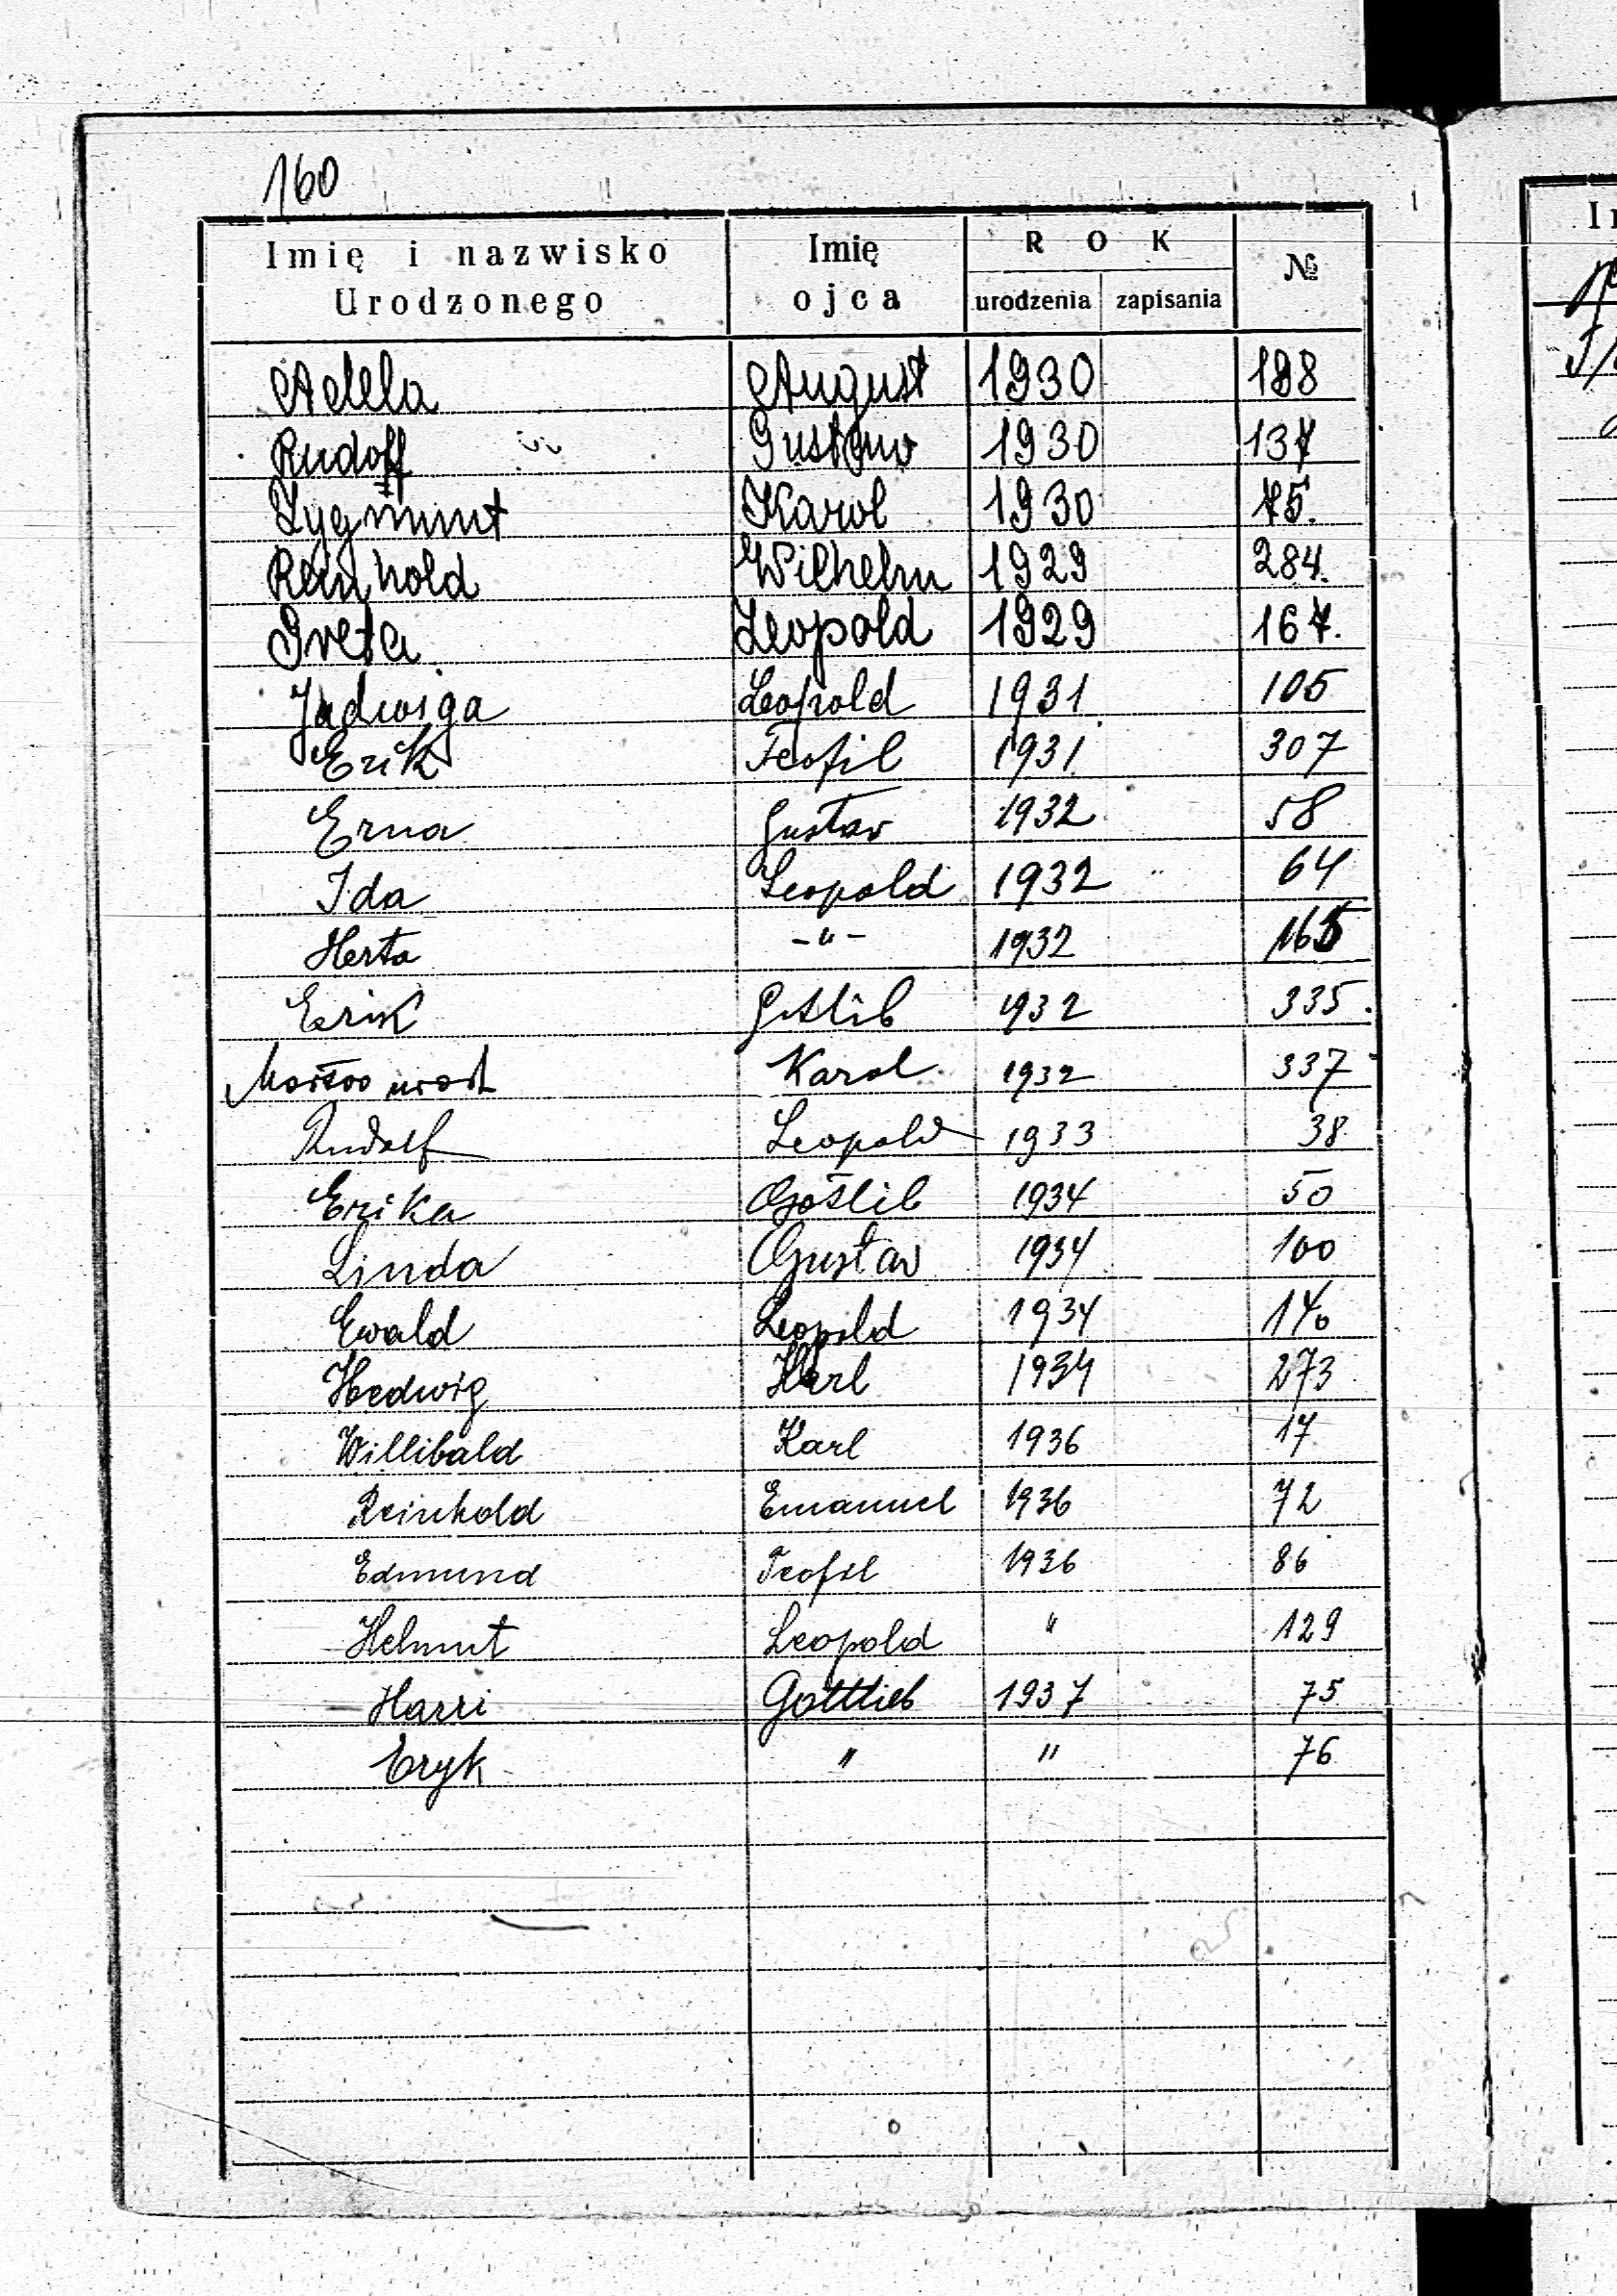 160
Imię i nazwisko Urodzonego | Imię ojca | ROK urodzenia | zapisania | №
Adela August 1930 198
Rudolf Gustaw 1930 137
Zygmunt Karol 1930 75.
Reinhold Wilhelm 1929 284.
Greta Leopold 1929 167.
Jadwiga Leopold 1931 105
Erik Teofil 1931 307
Erna Gustav 1932 58
Ida Leopold 1932 64
Herta -"- 1932 165
Erik Gotlib 1932 335.
Karol 1932 337
Rudolf Leopold 1933 38
Erika Gotlib 1934 50
Linda Gustav 1934 100
Ewald Leopold 1934 140
Hedwig Karl 1934 273
Willibald Karl 1936 17
Reinhold Emanuel 1936 72
Edmund Teofil 1936 86
Helmut Leopold " 129
Harri Gottlieb 1937 75
Eryk " " 76